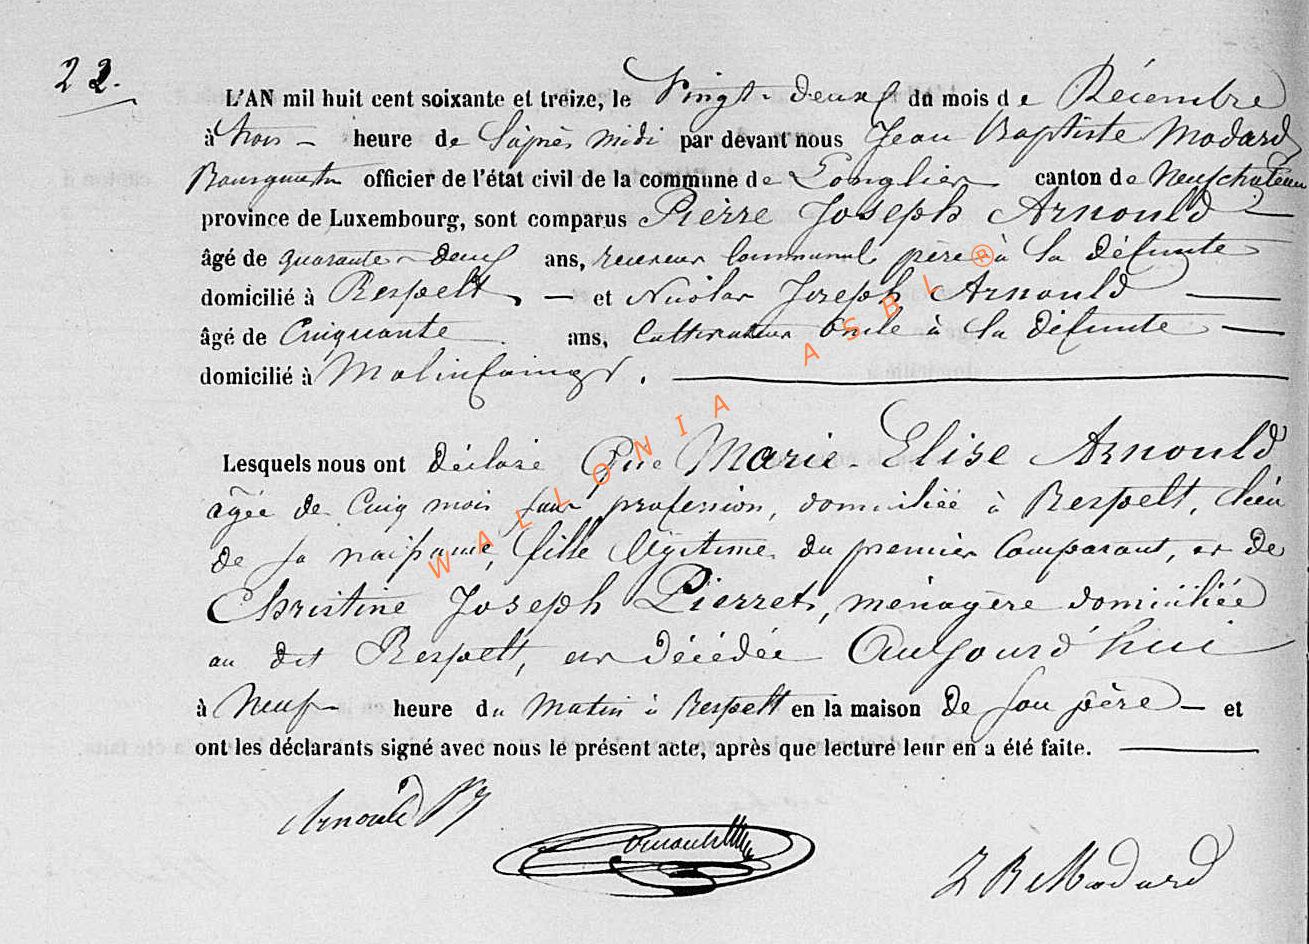 22.
L'AN mil huit cent soixante et treize, le Vingt-deux du mois de Décembre
à trois heure de l'après midi par devant nous Jean Baptiste Modard
Bourgmestre officier de l'état civil de la commune de Longlier canton de Neufchateau
province de Luxembourg, sont comparus Pierre Joseph Arnould
âgé de quarante-deux ans, receveur communal père à la défunte
domicilié à Respelt, et Nicolas Joseph Arnould
âgé de Cinquante ans, Cultivateur oncle à la défunte
domicilié à Molinfaing.
Lesquels nous ont déclaré Que Marie-Elise Arnould
agée de Cinq mois sans profession, domiciliée à Respelt, lieu
de sa naissance, fille légitime du premier Comparant, et de
Christine Joseph Pierret, ménagère domiciliée
au dit Respelt, est décédée Aujourd'hui
à Neuf heure du Matin à Respelt en la maison de son père et
ont les déclarants signé avec nous le présent acte, après que lecture leur en a été faite.
Arnould PJ
Arnould
J B Modard
WALLONIA ASBL ®